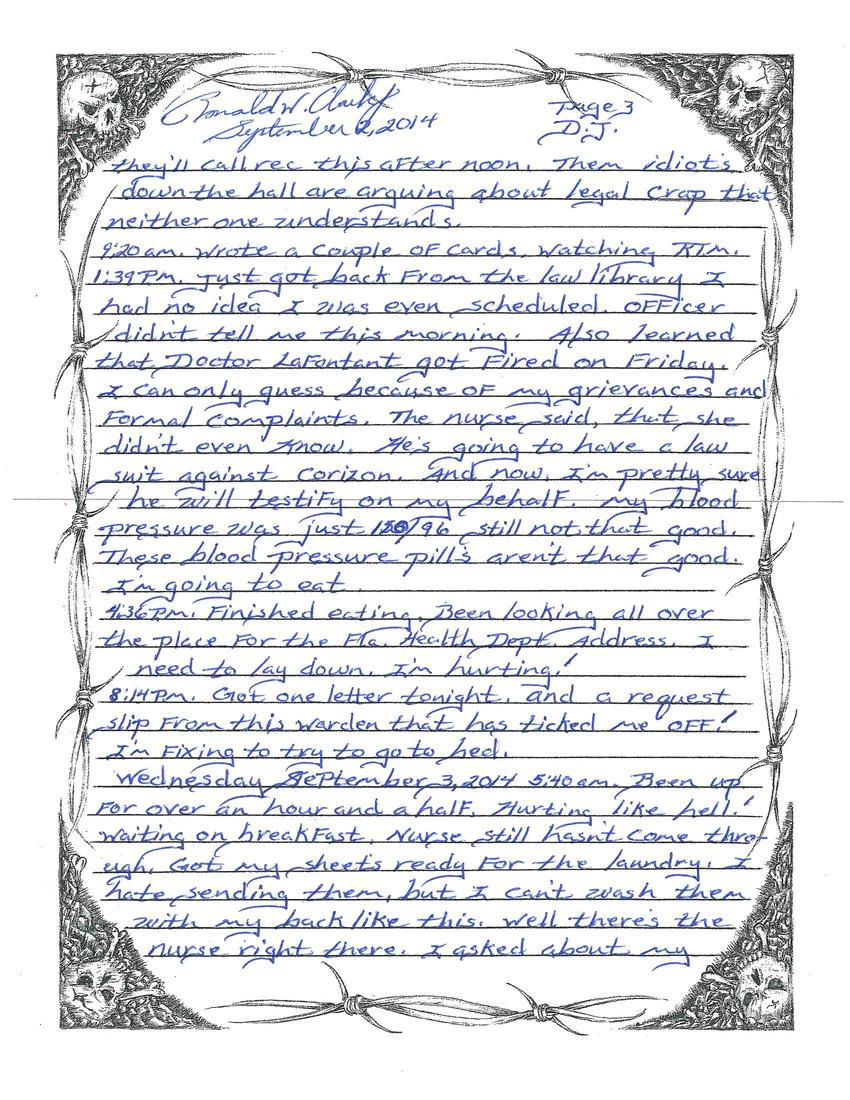 Ronald W. Clark Jr
Page 3
September 2, 2014
D.J.
they'll call rec this after noon. Them idiot's
down the hall are arguing about legal crap that
neither one understands.
9:20 am. Wrote a couple of cards. Watching RTM.
1:39 P.M. Just got back from the law library I
had no idea I was even scheduled. Officer
didn't tell me this morning. Also learned
that Doctor LaFontant got Fired on Friday.
I can only guess because of my grievances and
Formal complaints. The nurse said, that she
didn't even know. He's going to have a law
suit against Corizon. And now, I'm pretty sure
he will testify on my behalf. My blood
pressure was just 150/96 still not that good.
These blood pressure pill's aren't that good.
I'm going to eat.
4:36 P.M. Finished eating. Been looking all over
the place for the Fla. Health Dept. Address. I
need to lay down. I'm hurting!
8:14 P.M. Got one letter tonight. and a request
slip from this warden that has ticked me OFF!
I'm Fixing to try to go to bed.
Wednesday September 3, 2014 5:40 am. Been up
For over an hour and a half. Hurting like hell!
Waiting on breakfast. Nurse still hasn't come thro-
ugh. Got my sheets ready For the laundry. I
hate sending them, but I can't wash them
with my back like this. Well there's the
nurse right there. I asked about my